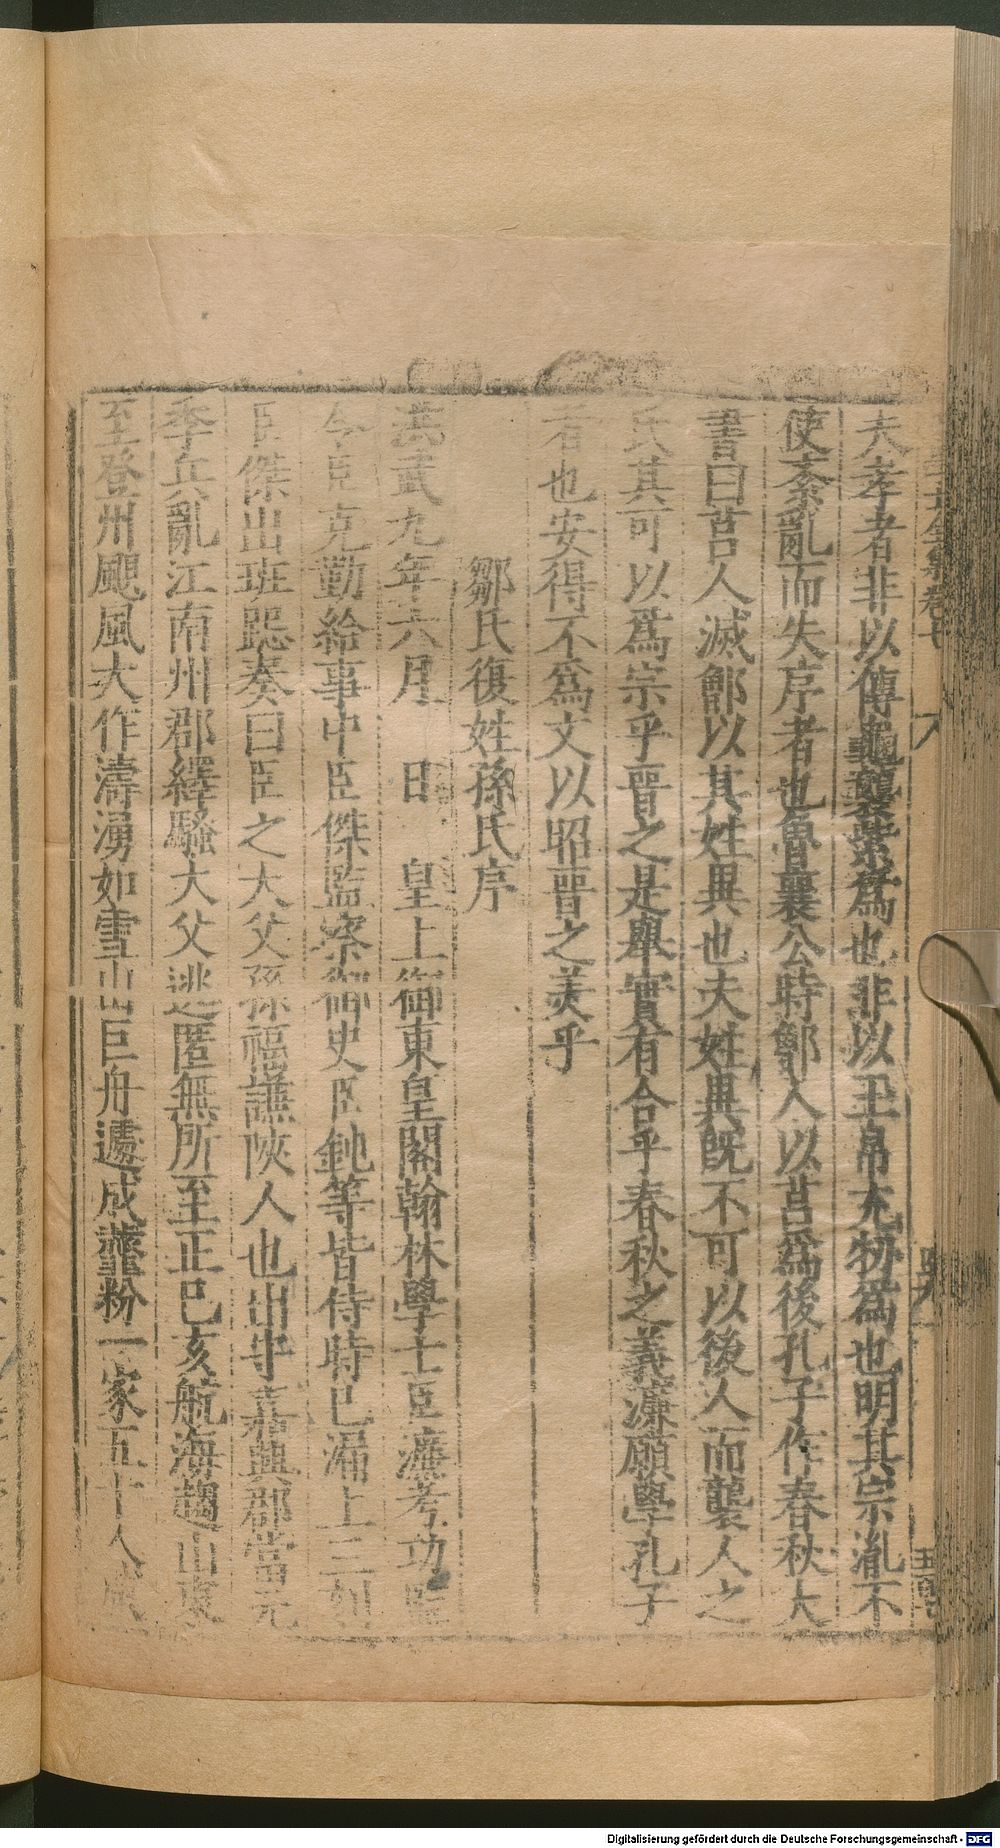 夫孝者非以傳龜襲紫爲也非以玉帛充牣爲也明其宗胤不
使紊亂而失序者也魯襄公時鄫人以莒爲後孔子作春秋大
書曰莒人滅鄫以其姓異也夫姓異既不可以後人而襲人之
氏其可以爲宗乎晋之是舉實有合乎春秋之義濂願學孔子
者也安得不爲文以昭晋之美乎
鄒氏復姓孫氏序
洪武九年六月 日 皇上御東皇閣翰林學士臣濂考功臣
今臣克勤給事中臣傑監察御史臣鈍等皆侍時已漏上三刻
臣傑出班跽奏曰臣之大父孫福譙陝人也出守 郡當元
季兵亂江南州郡繹騷大父逃匿無所至正己亥航海趨山東
至登州颶風大作濤湧如雪山巨舟遽成虀粉一家五十人咸
Digitalisierung gefördert durch die Deutsche Forschungsgemeinschaft - DFG